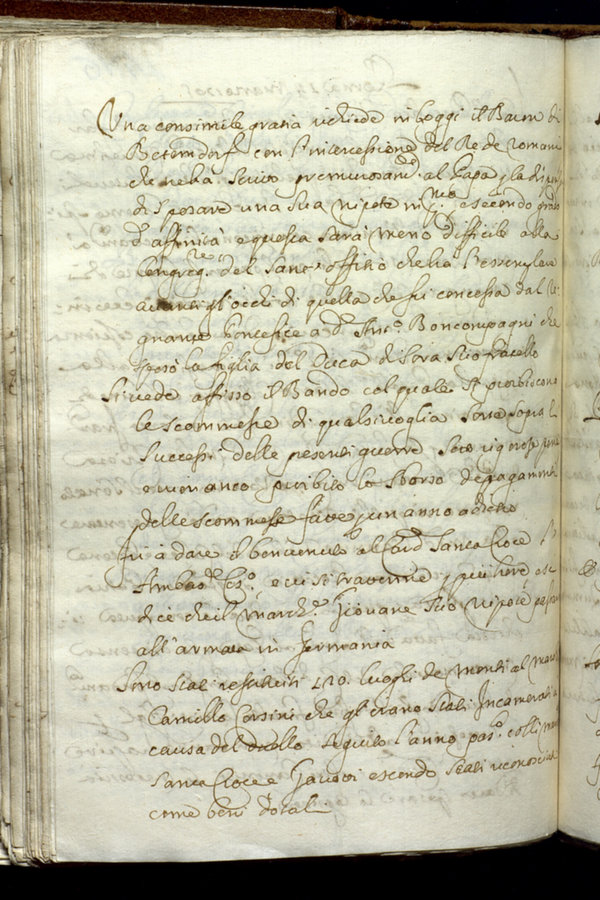 Una consimile gratia richiede in hoggi il Baron di
Betemdorf con l'intercessione del Re de Romani
che ne ha scritto premurosam.te al Papa p la dispensa
di sposare una sua nipote in p.mo e secondo grado
d'affinità e questa sarà meno difficile alla
Congreg.ne del Sant'offitio che ha l'essemplare
avanti gl'occhi di quella che fu concessa dal Re
gnante Pontefice a D. Ant.o Boncompagni che
sposò la figlia del Duca di Sora suo fratello
Si vede affisso il Bando col quale si proibiscono
le scommesse di qualsivoglia sorte sopra li
successi delle presenti guerre sotto rigorose pene
e vien anco proibito lo sborso de pagamenti
delle scommesse fatte p un anno adietro
Fu à dare il benvenuto al Card. Santa Croce l'
Ambas.re Ces.o e vi si trattenne p più hore e si
dice che il March.e Giovane suo nipote passi
all'armata in Germania
Sono stati restituiti 120 luoghi de Monti al March
Camillo Corsini che gl'erano stati Incamerati a
causa del duello seguito l'anno pas.o colli
Santa Croce e Gavotti essendo stati riconosciuti
come beni dotali